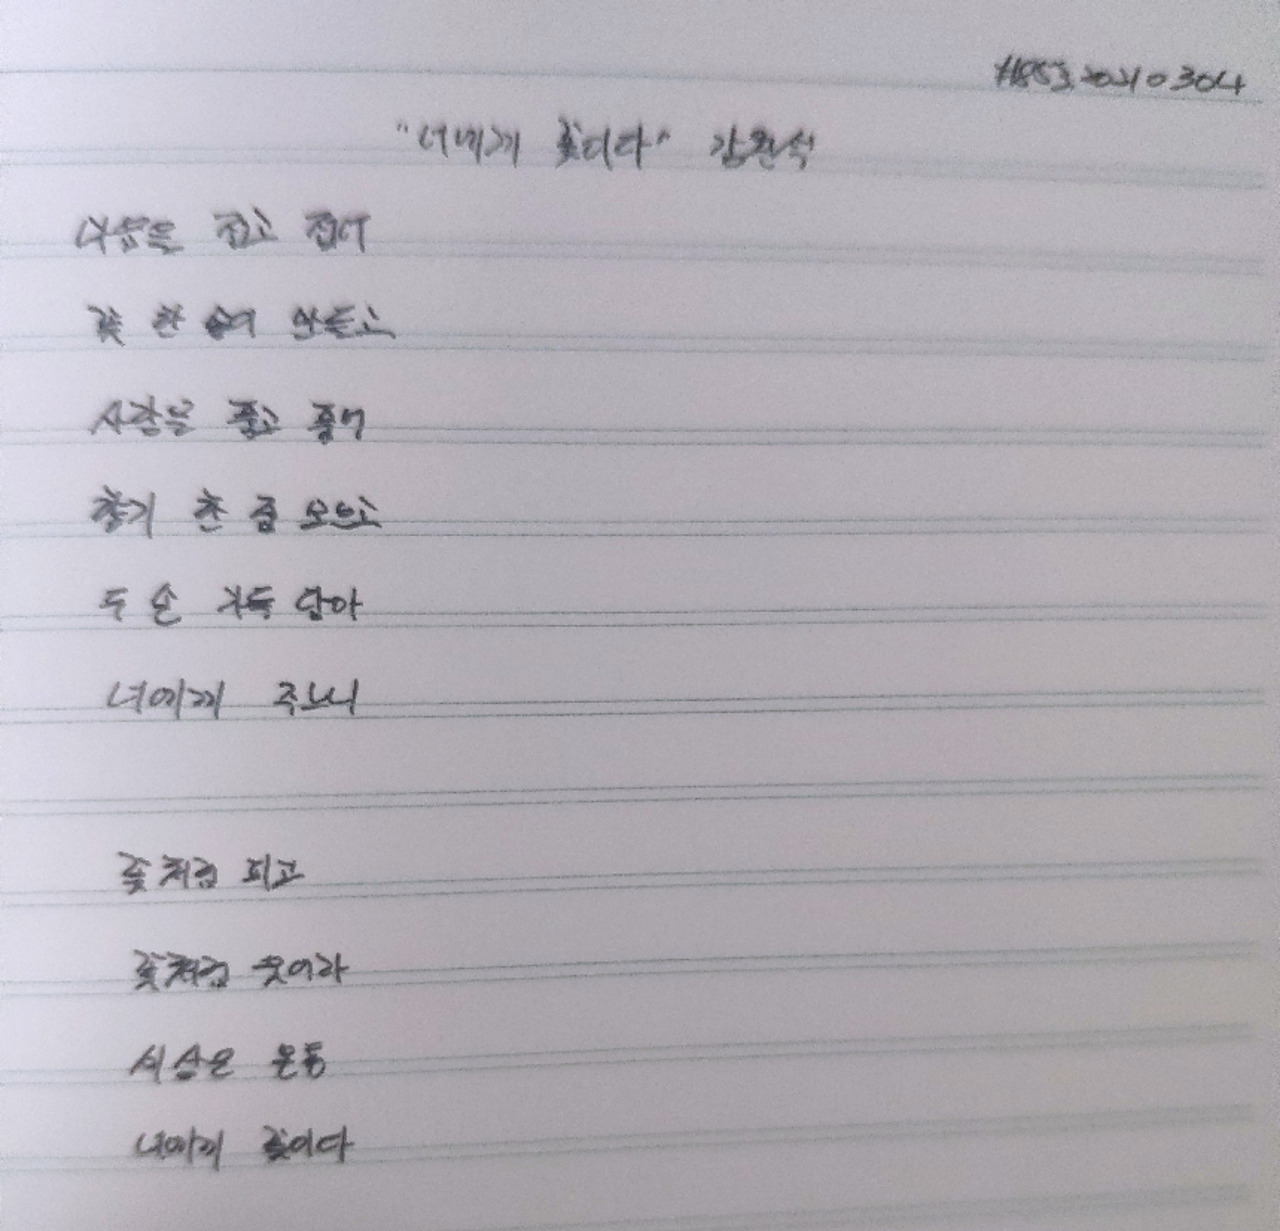 #853. 20210304
"너에게 꽃이다" 강원석
마음을 접고 접어
꽃 한 송이 만들고
사랑을 품고 품어
향기 한 줌 모으고
두 손 가득 담아
너에게 주느니
꽃처럼 피고
꽃처럼 웃어라
세상은 온통
너에게 꽃이다